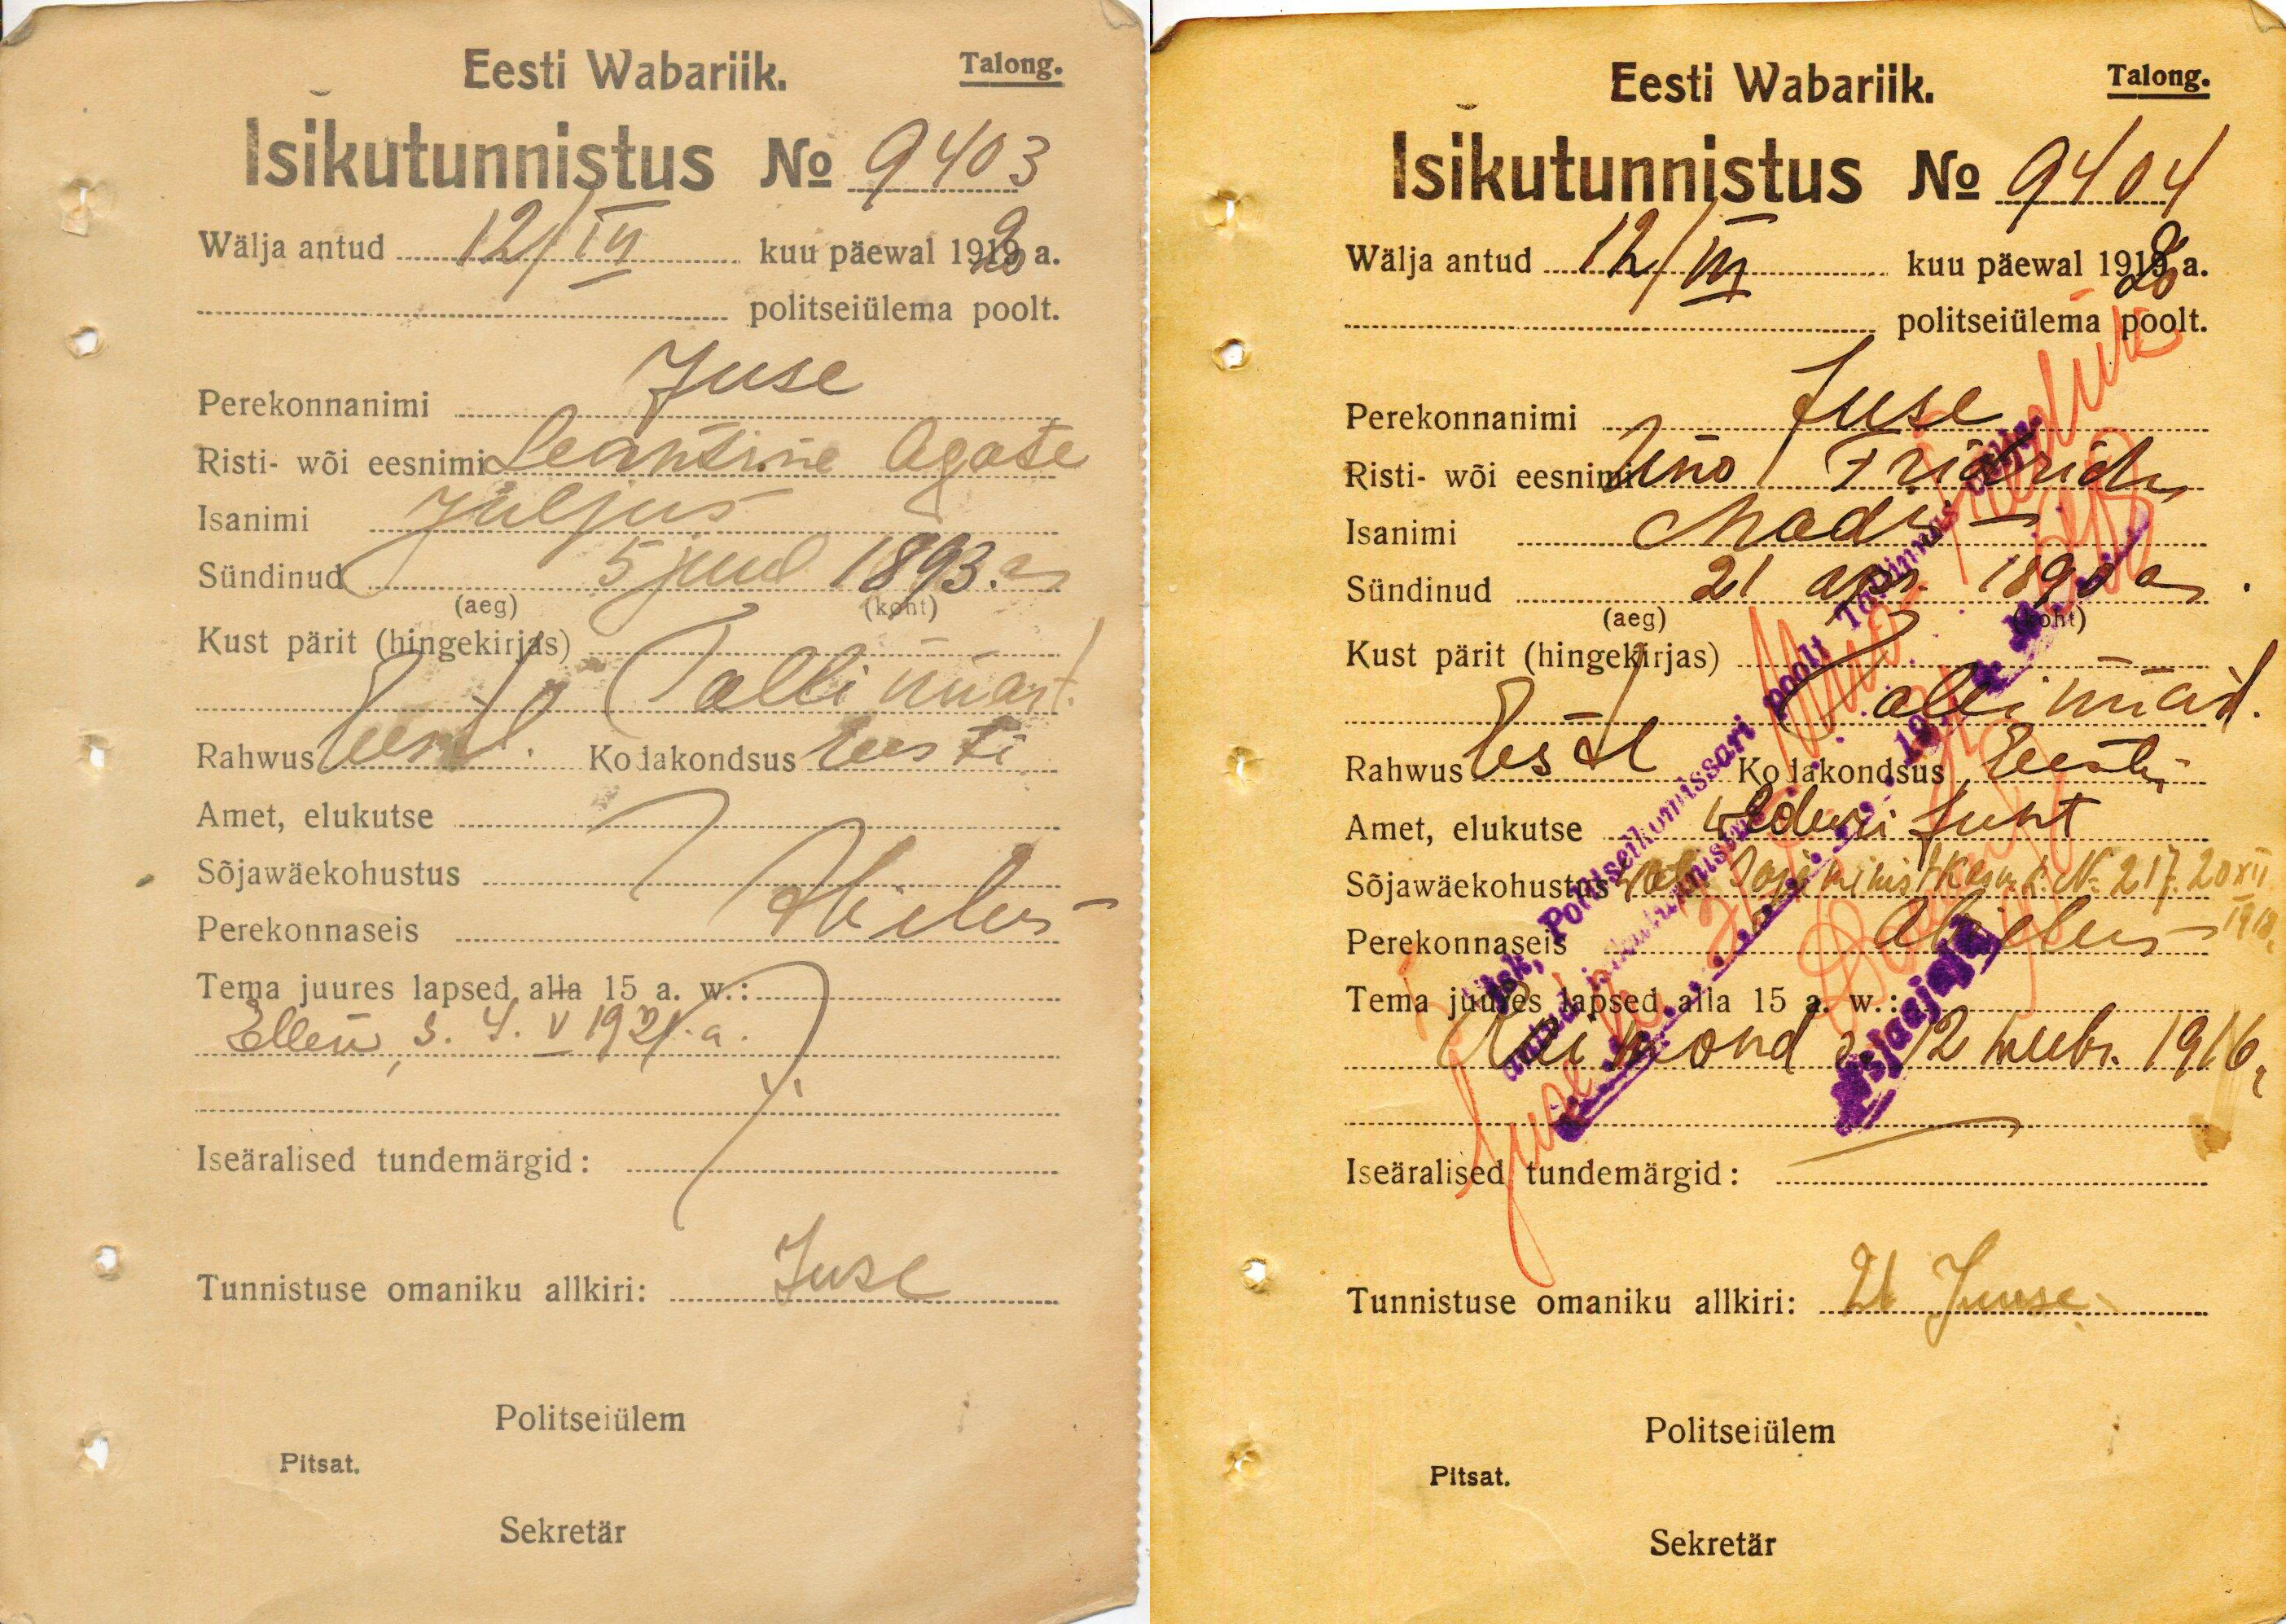 Eesti Wabariik. Talong.
Isikutunnistus No 9403
Wälja antud 12/III kuu päewal 1920 a.
politseiülema poolt.
Perekonnanimi Juse
Risti- wõi eesnimi Leantine Agate
Isanimi Juljus
Sündinud 5 juul 1893. a
(aeg) (koht)
Kust pärit (hingekirjas)
Tallinnast.
Rahwus Kodakondsus Eesti
Amet, elukutse
Sõjawäekohustus
Perekonnaseis Abielus
Tema juures lapsed alla 15 a. w.:
Ellen, s. 4. V 1921. a.
Iseäralised tundemärgid:
Tunnistuse omaniku allkiri: Juse
Politseiülem
Pitsat.
Sekretär
Eesti Wabariik. Talong.
Isikutunnistus No 9404
Wälja antud 12/III kuu päewal 1920 a.
politseiülema poolt.
Perekonnanimi Juse
Risti- wõi eesnimi Uno Friedrich
Isanimi Madis
Sündinud 21 apr. 1890 a
(aeg) (koht)
Kust pärit (hingekirjas)
Tallinnast.
Rahwus Kodakondsus Eesti
Amet, elukutse weduri juht
Sõjawäekohustus № 217. 20 XII
1918.
Perekonnaseis Abielus
Tema juures lapsed alla 15 a. w.:
Raimond s. 12 1916.
Iseäralised tundemärgid:
Tunnistuse omaniku allkiri: Juuse
Politseiülem
Pitsat.
Sekretär
Politseikomissari poolt Tallinnas wälja
antud isikutunnistuse
Asjaajaja